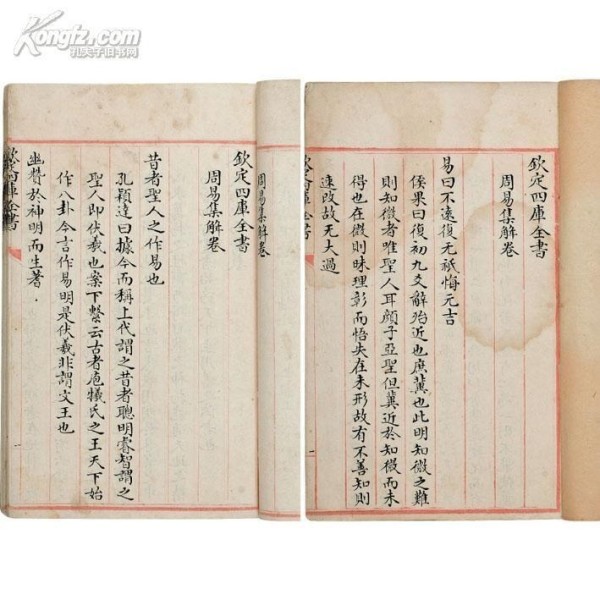 Kongfz.com
孔夫子旧书网
欽定四庫全書
周易集解卷
易曰不遠復无祗悔元吉
侯果曰復初九爻解殆近也庶冀也此明知微之難
則知微者唯聖人耳顏子亞聖但冀近於知微而未
得也在微則昧理彰而悟失在未形故有不善知則
速改故无大過
欽定四庫全書
一
周易集解卷
欽定四庫全書
周易集解卷
昔者聖人之作易也
孔穎達曰據今而稱上代謂之昔者聰明睿智謂之
聖人即伏羲也案下繫云古者庖犧氏之王天下始
作八卦今言作易明是伏羲非謂文王也
幽贊於神明而生蓍
欽定四庫全書